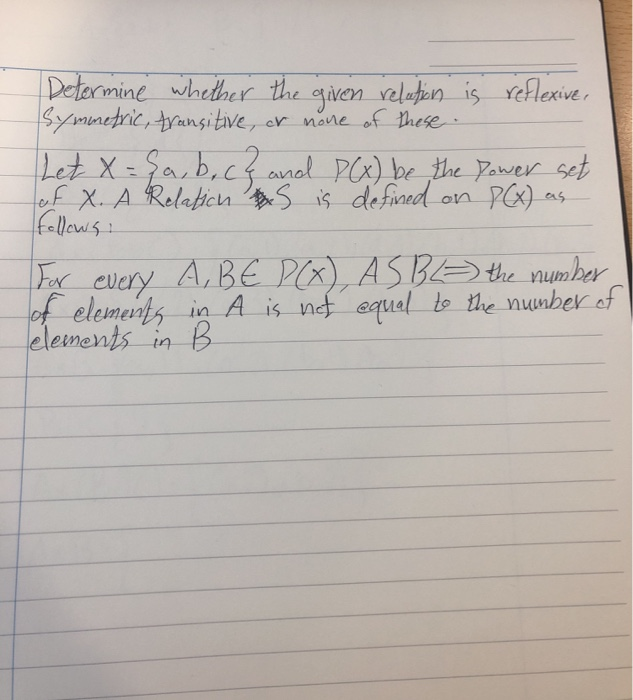 Determine whether the given relation is reflexive,
Symmetric, transitive, or none of these.
Let X = {a, b, c} and P(X) be the Power set
of X. A Relation S is defined on P(X) as
follows:
For every A, B ∈ P(X), A S B ⟺ the number
of elements in A is not equal to the number of
elements in B